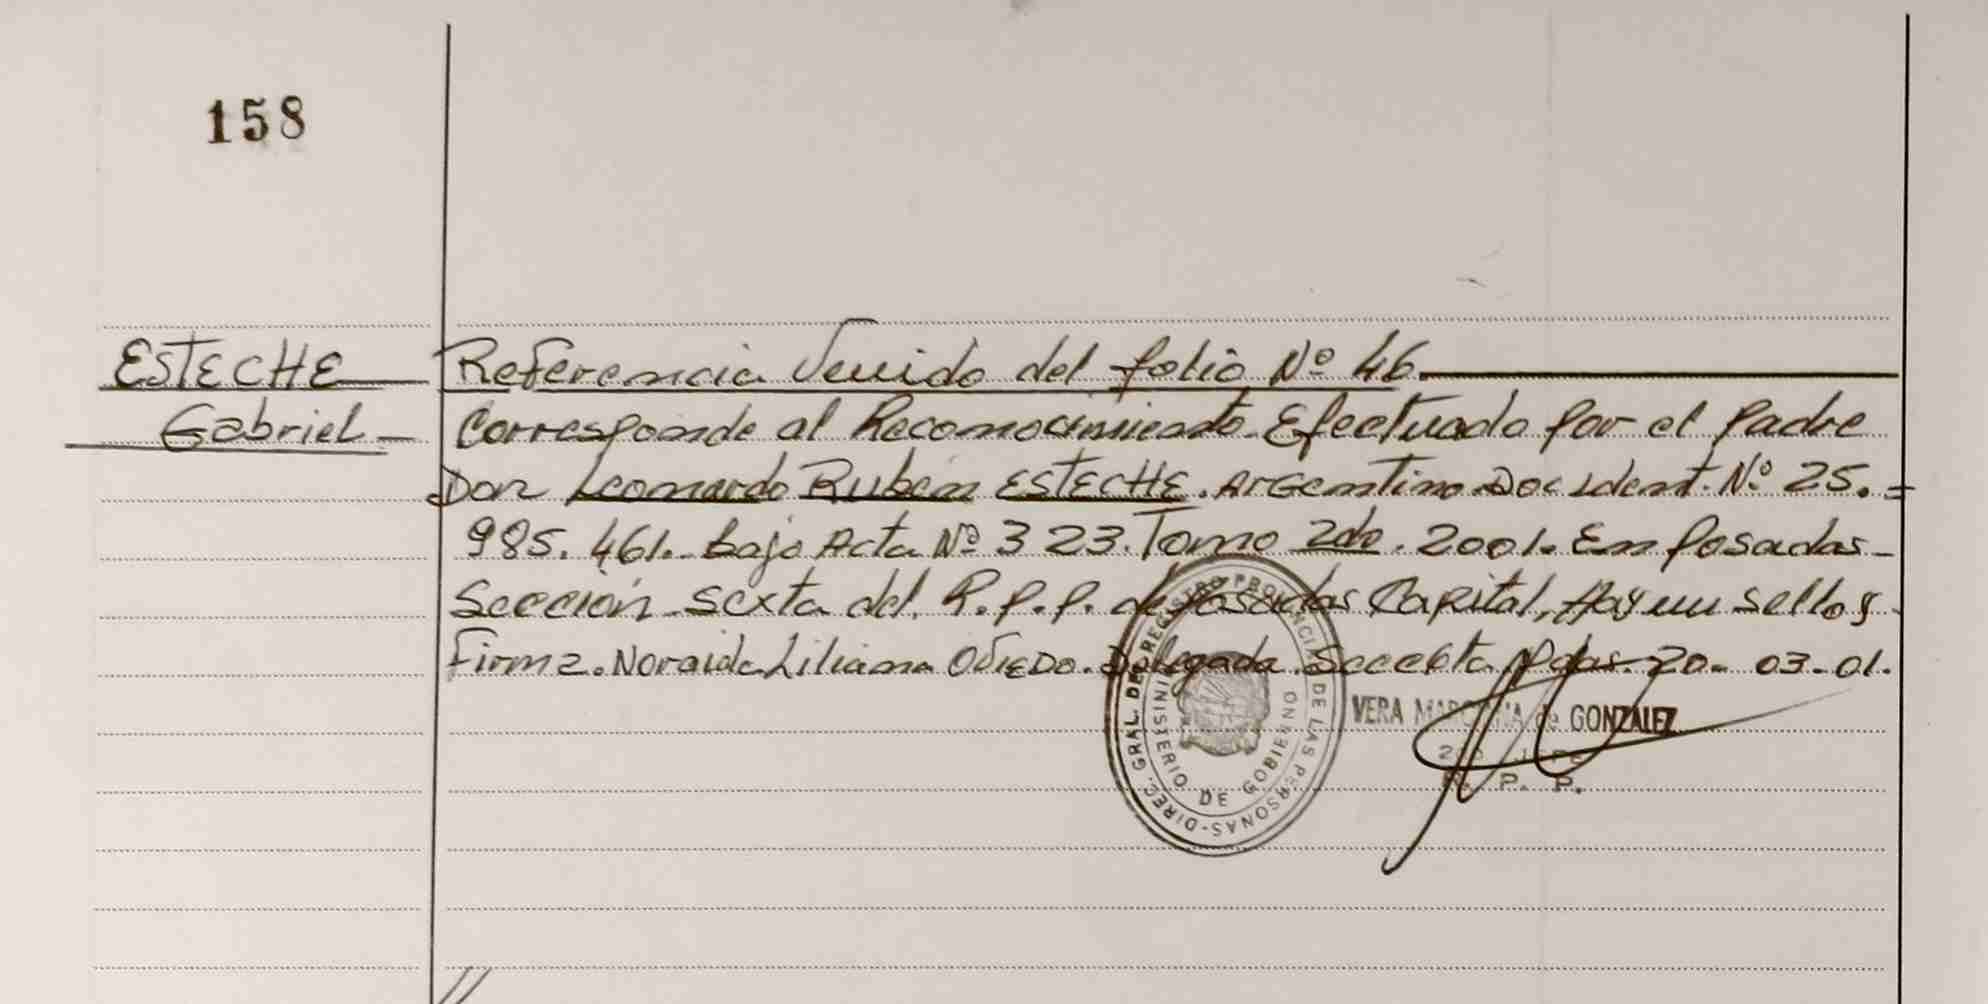 158
ESTECHE
Gabriel –
Referencia Venido del folio Nº 46.
Corresponde al Reconocimiento Efectuado por el padre
Don Leonardo Rubén ESTECHE. Argentino Doc Ident. Nº 25. =
985. 461. bajo Acta Nº 323. Tomo 2do. 2001. En Posadas –
Sección Sexta del R.P.P. de Posadas Capital, Hay un sello y
Firma. Noraida Liliana Oviedo. Delegada Secc 6ta Pdas. 20- 03-01.
DIREC. GRAL. DE REGISTRO PROVINCIAL DE LAS PERSONAS
MINISTERIO DE GOBIERNO
VERA de GONZALEZ
R. P. P.